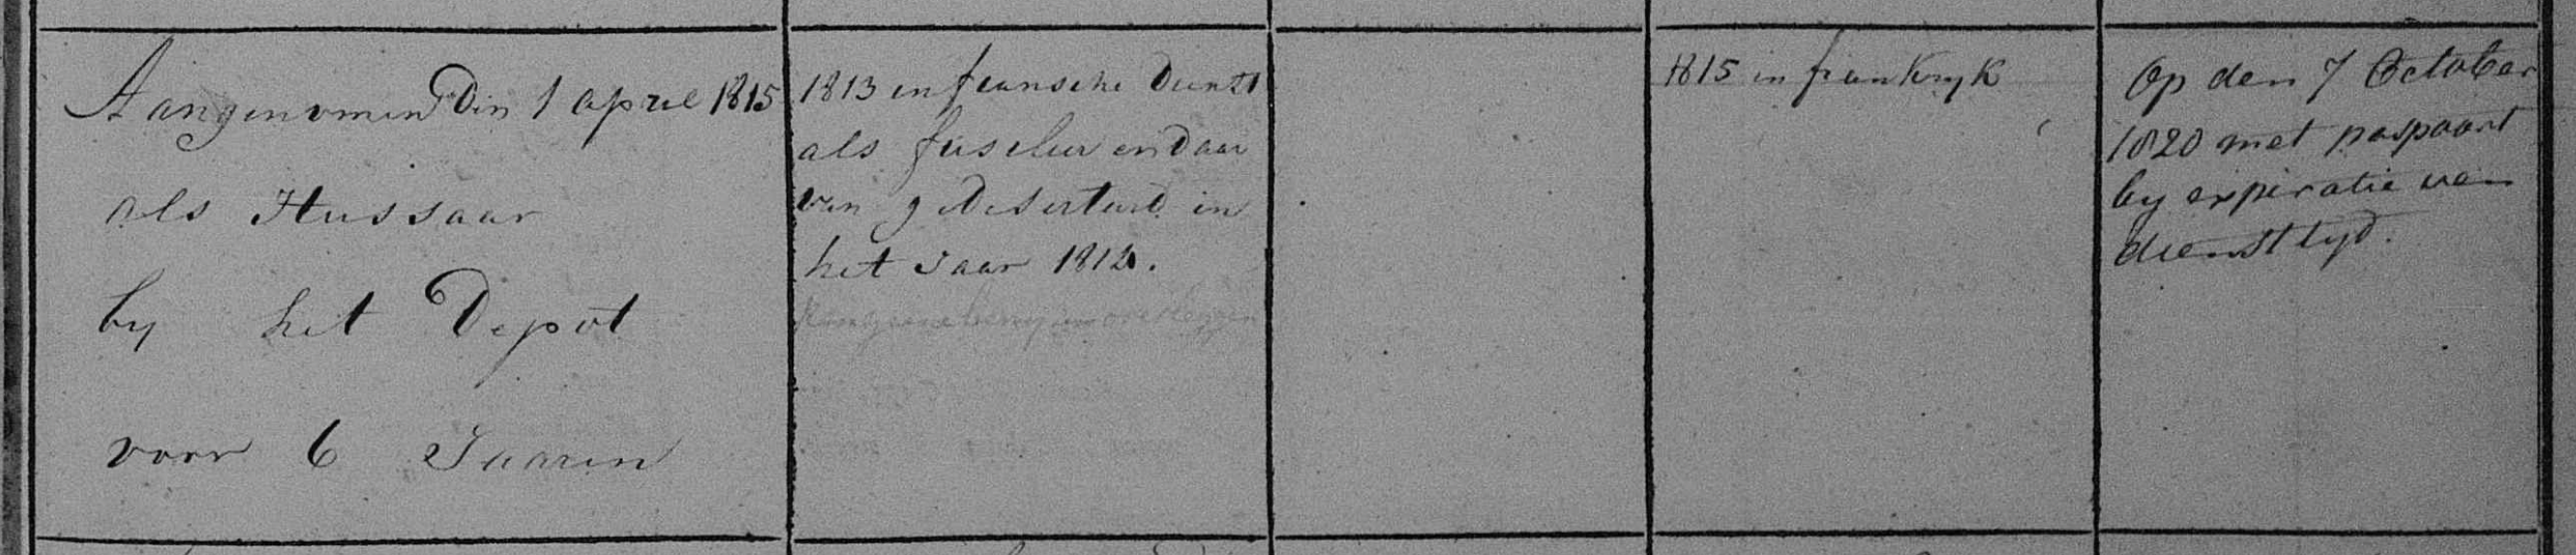 Aangenomen Den 1 april 1815
als Hussaar
by het Depot
voor 6 Jaaren
1813 in fransche Dienst
als fuselier en Daar
van gedeserteerd in
het Jaar 1814.
1815 in frankryk
Op den 7 October
1820 met paspoort
by expiratie van
diensttyd.